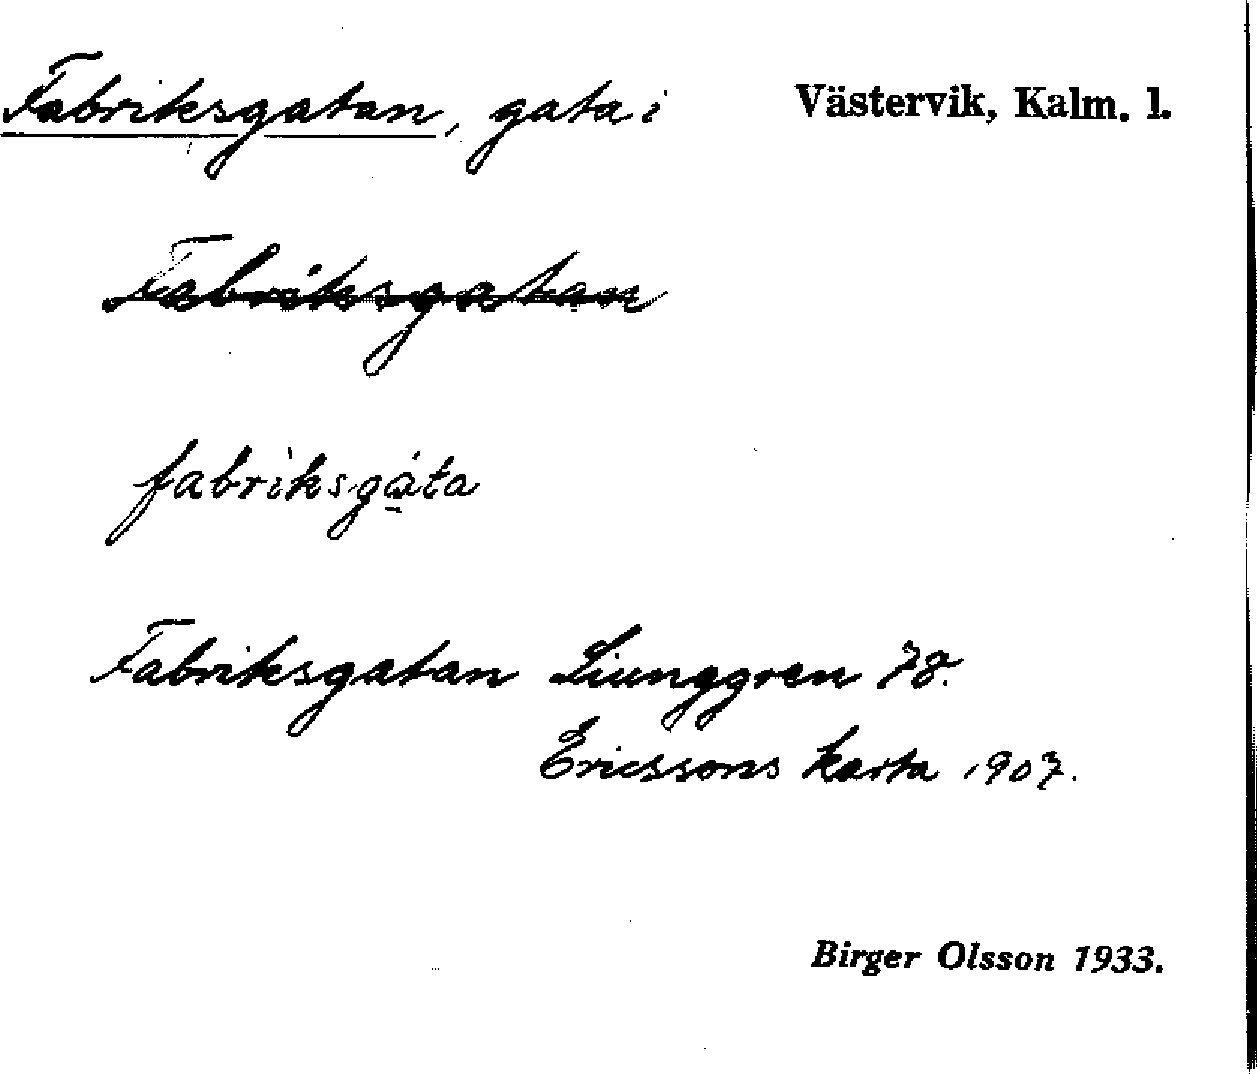 Fabriksgatan, gata i Västervik, Kalm. l.
Fabriksgatan
fabriksgata
Fabriksgatan Ljunggren 78.
Ericssons karta 1907.
Birger Olsson 1933.